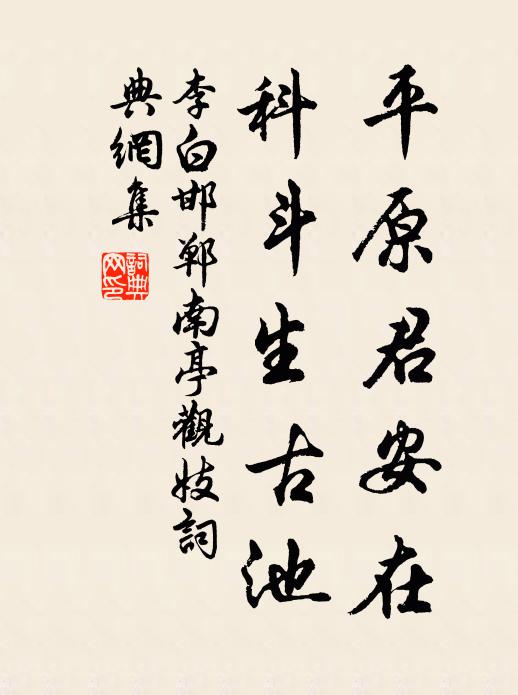 平原君安在
科斗生古池
李白邯鄲南亭觀妓詞
典網集
詞典
网印